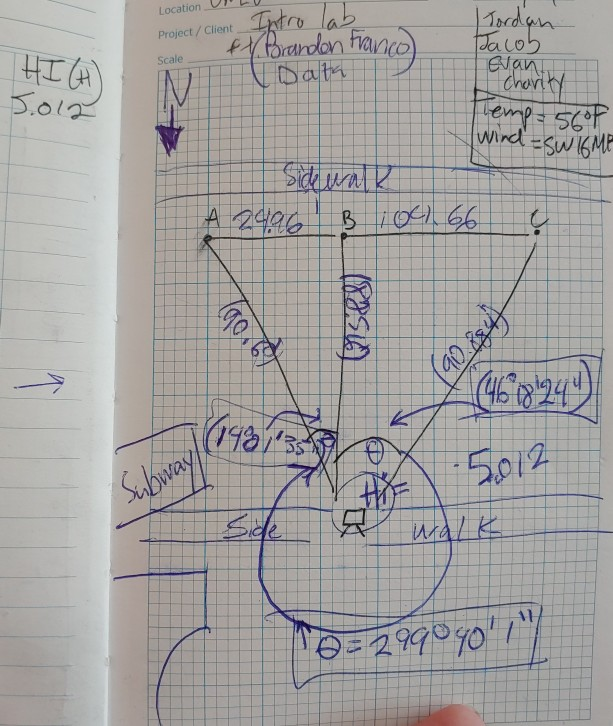 HI(H)
5.012
Location
Project / Client Intro lab
ft (Brandon Franco)
Scale
Data
Jordan
Jacob
Evan
charity
Temp = 56°F
Wind = SW 16 MP
N
Sidewalk
A 24.96 B 104.66 C
(90.884)
(46°18'24")
Subway
θ
5.012
Hi =
Side walk
θ = 299° 40' 1"